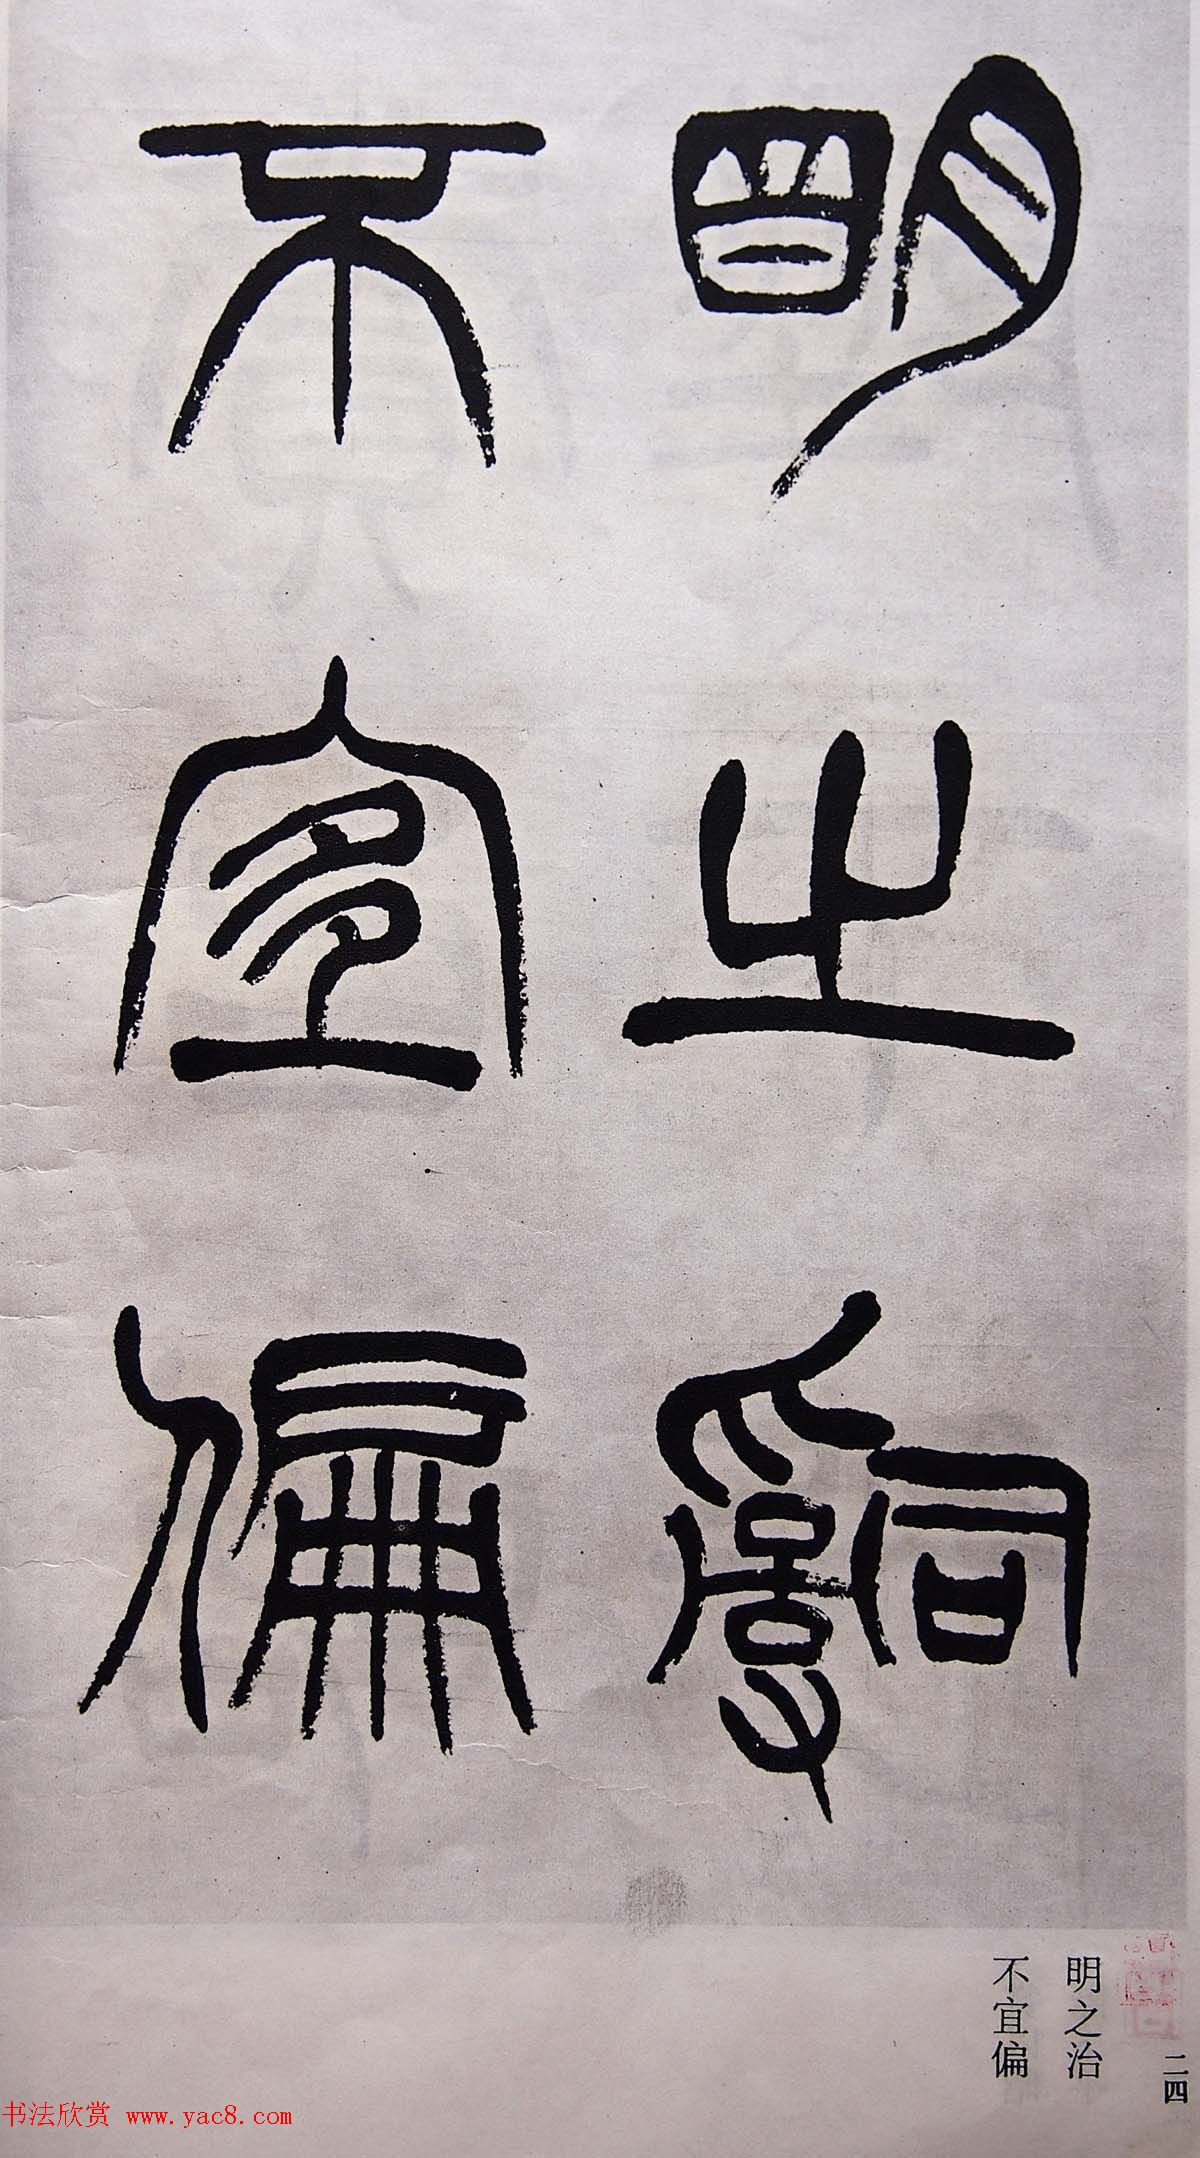 明之治
不宜偏
明之治
不宜偏
二四
书法欣赏 www.yac8.com